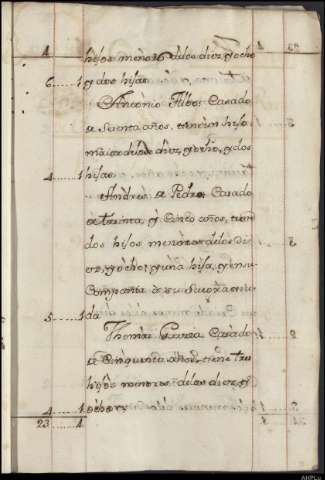 4 hijos menores delos diez, y ocho
6 1 y dos hijas
Antonio Casado
de años, tiene un hijo
maior delos diez, y ocho, y dos
4 1 hijas
Andres de Pedro Casado
de treinta, y Cinco años, tiene
dos hijos menores delos di
ez, y ocho, y una hija, y en su
Compañia a su Suegra viu
5 1 da
Thomas Garcia Casado
de Cinquenta años, tiene tres
hijos menores delos diez, y
4 1 ocho
23 4
AHPLu